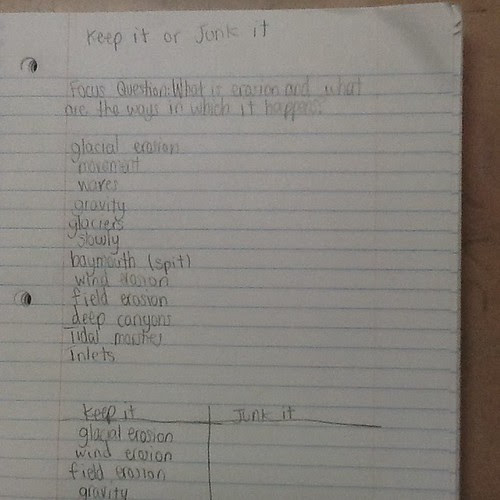 Keep it or Junk it
Focus Question: What is erosion and what
are the ways in which it happens?
glacial erosion
movement
waves
gravity
glaciers
slowly
baymouth (spit)
wind erosion
field erosion
deep canyons
Tidal marshes
Inlets
Keep it Junk it
glacial erosion
wind erosion
field erosion
gravity